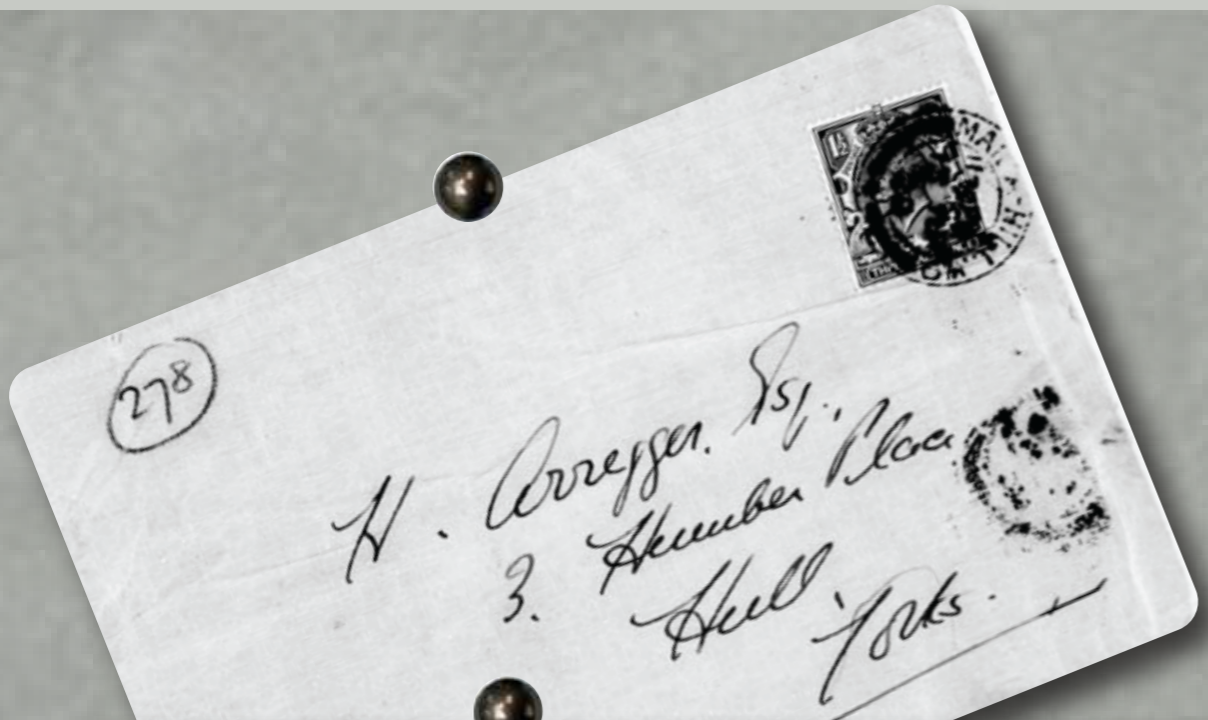 278
H. Arregger. Esq.,
3. Humber Place
Hull.
Yorks.